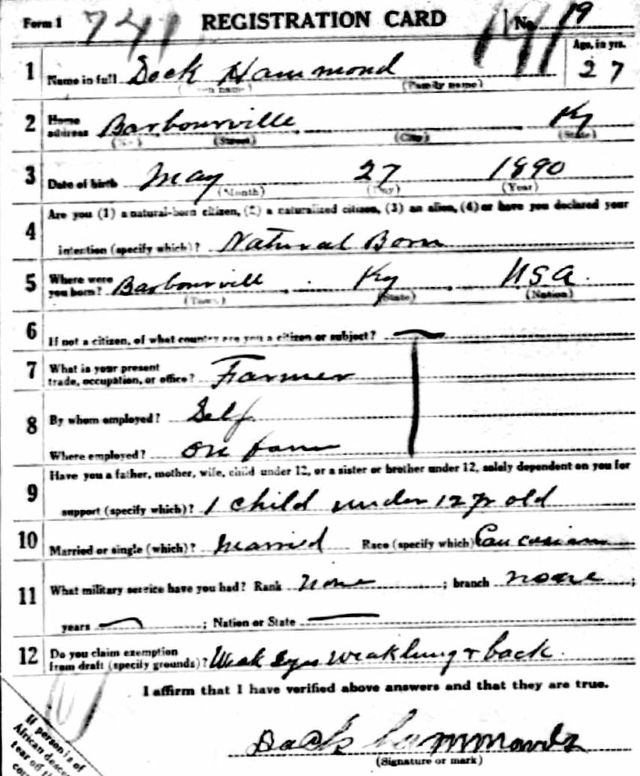 Form 1 741 REGISTRATION CARD No. 19
191
Age, in yrs.
1 Name in full Dock Hammond 27
(Given name) (Family name)
2 Home address Barbourville Ky
(No.) (Street) (City) (State)
3 Date of birth May 27 1890
(Month) (Day) (Year)
4 Are you (1) a natural-born citizen, (2) a naturalized citizen, (3) an alien, (4) or have you declared your
intention (specify which)? Natural Born
5 Where were you born? Barbourvill Ky USA.
(Town) (State) (Nation)
6 If not a citizen, of what country are you a citizen or subject?
7 What is your present trade, occupation, or office? Farmer
8 By whom employed? Self
Where employed? on farm
9 Have you a father, mother, wife, child under 12, or a sister or brother under 12, solely dependent on you for
support (specify which)? 1 child under 12 yr old
10 Married or single (which)? Married Race (specify which) Caucasian
11 What military service have you had? Rank none ; branch none
years ; Nation or State
12 Do you claim exemption from draft (specify grounds)? Weak Eyes weak lung & back.
I affirm that I have verified above answers and that they are true.
Dock Hammonds
(Signature or mark)
If person is of
African desce
tear off th
cor